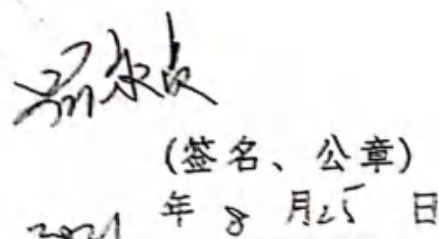 (签名、公章)
2021年8月25日